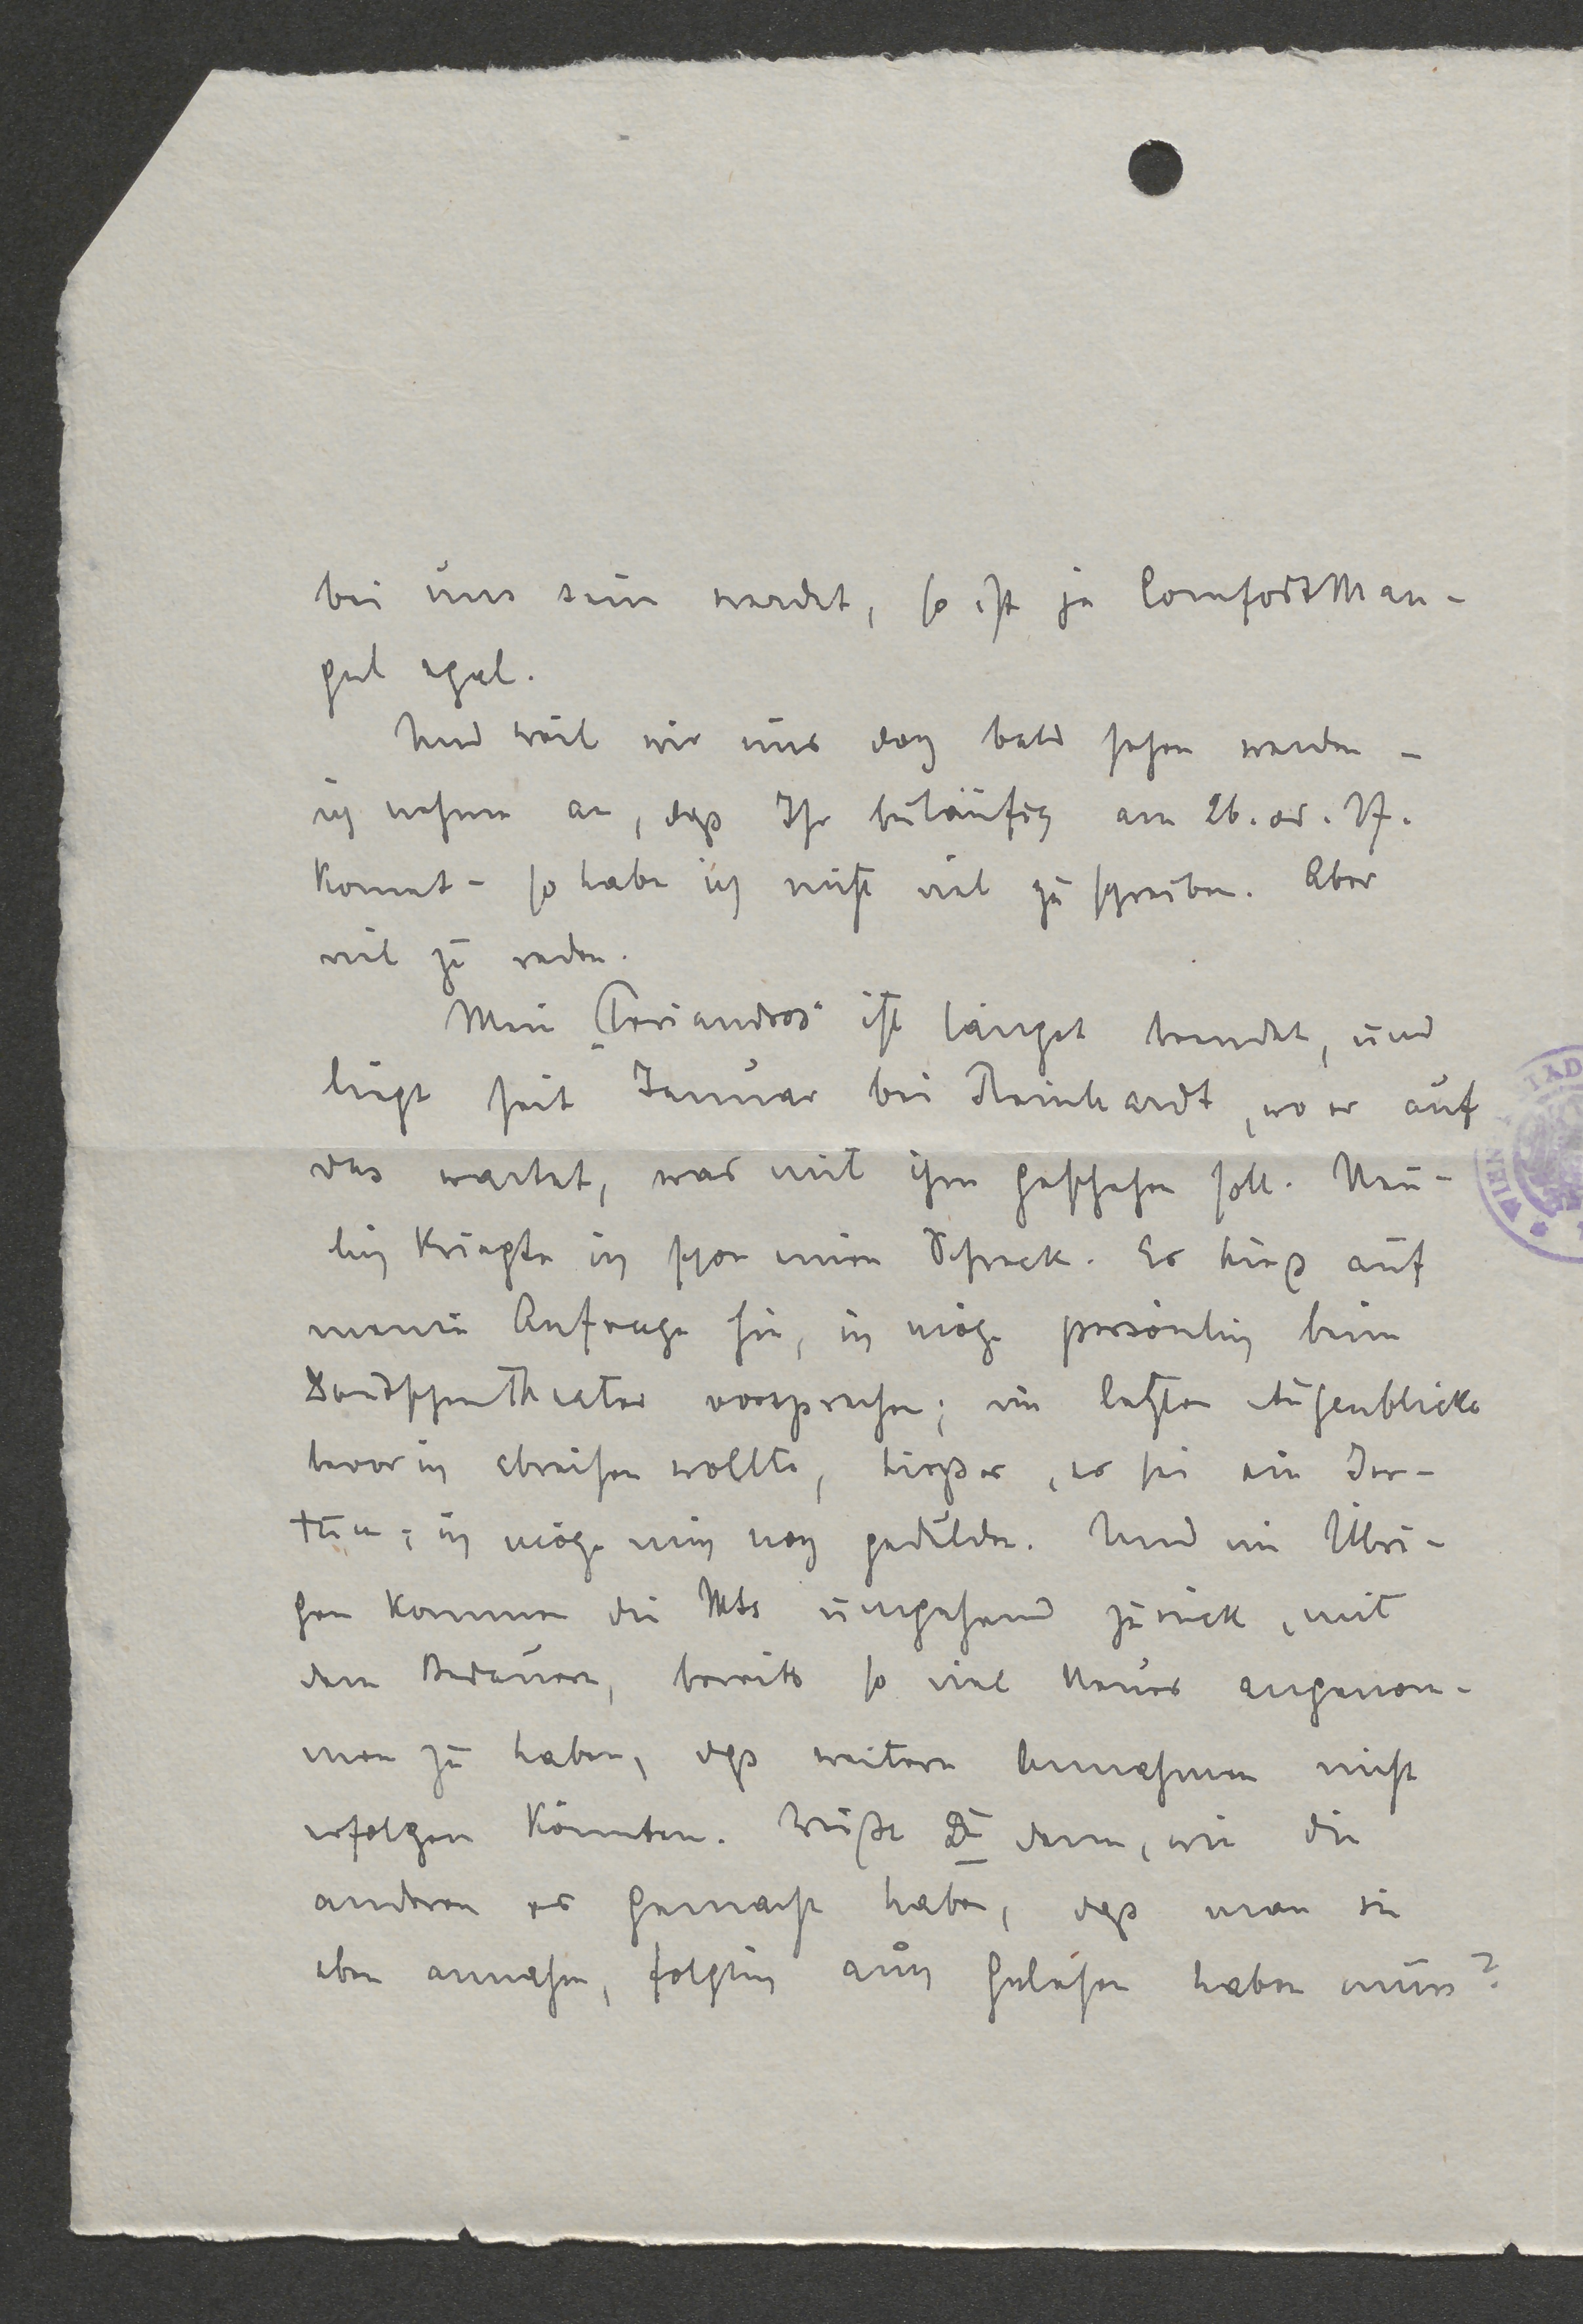 bei uns sein werdet, so ist ja Comfortman-
gel egal.
Und weil wir uns doch bald sehen werden –
ich nehme an, daß Ihr beiläufig am 26. od. 27.
kommt – so habe ich nicht viel zu schreiben. Aber
viel zu reden.
Mein „Periandros“ ist längst beendet, und
liegt seit Januar bei Reinhardt, wo er auf
das wartet, was mit ihm geschehen soll. Neu-
lich kriegte ich schon einen Schreck. Es hieß auf
meine Anfrage hin, ich möge persönlich beim
Deutschen Theater vorsprechen; im letzten Augenblicke
bevor ich abreisen wollte, hieß es, es sei ein Irr-
tum; ich möge mich noch gedulden. Und im Übri-
gen kommen die Mts umgehend zurück, mit
dem Bedauern, bereits so viel Neues angenom-
men zu haben, daß weitere Annahmen nicht
erfolgen könnten. Weißt Du denn, wie die
anderen es gemacht haben, daß man sie
eben annahm, folglich auch gelesen haben muss?
WIEN STAD